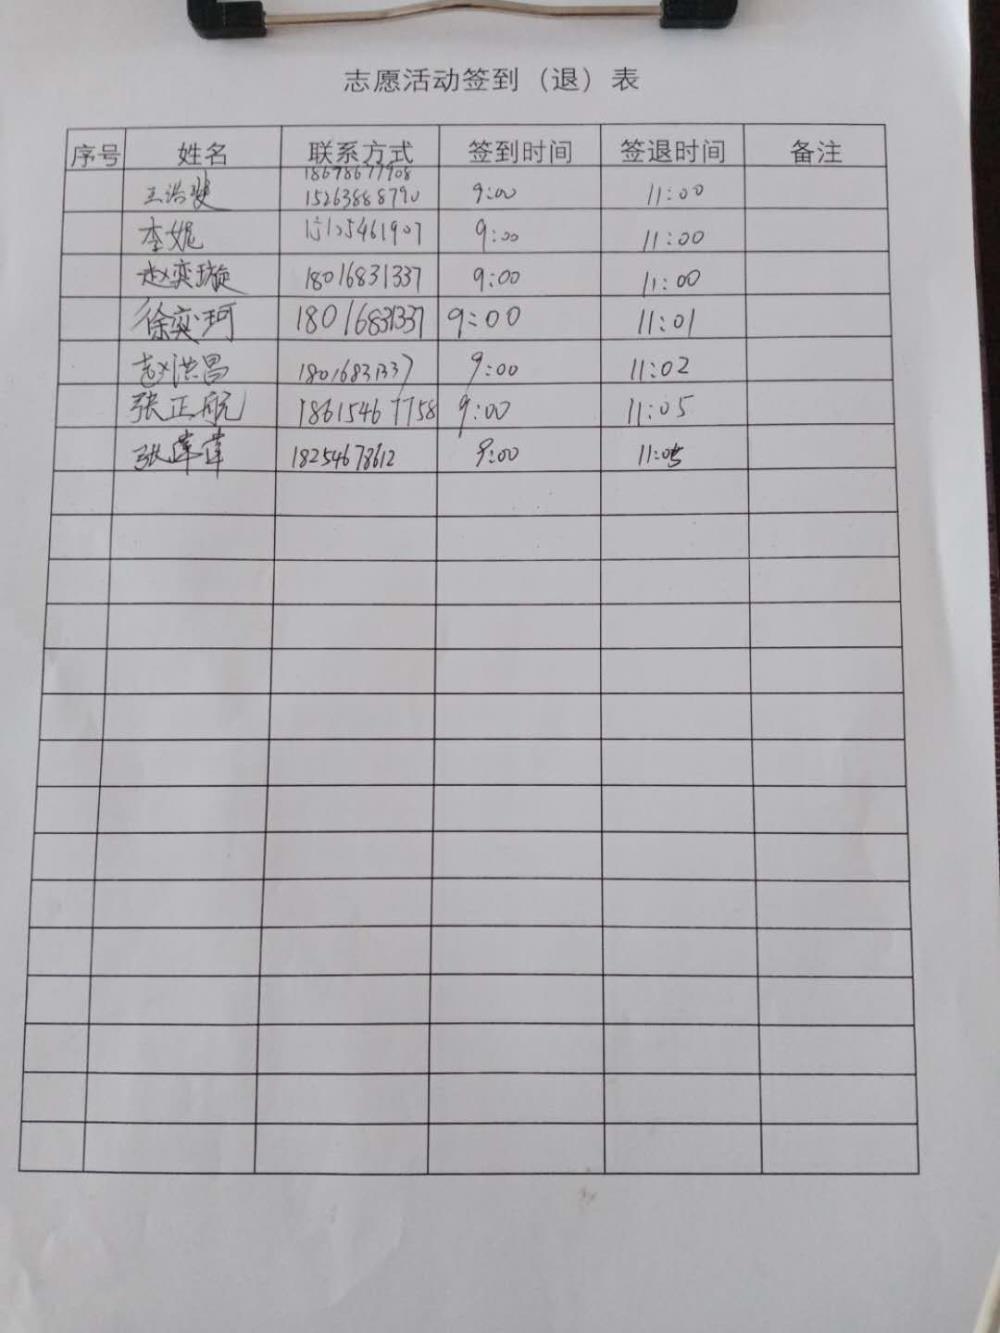 志愿活动签到（退）表
序号 姓名 联系方式 签到时间 签退时间 备注
18678677908
王浩斐 15263888790 9:00 11:00
李妮 9:00 11:00
赵奕璇 18016831337 9:00 11:00
徐奕珂 18016831337 9:00 11:01
赵洪昌 18016831337 9:00 11:02
张正航 18615467758 9:00 11:05
张 18254678612 9:00 11:05